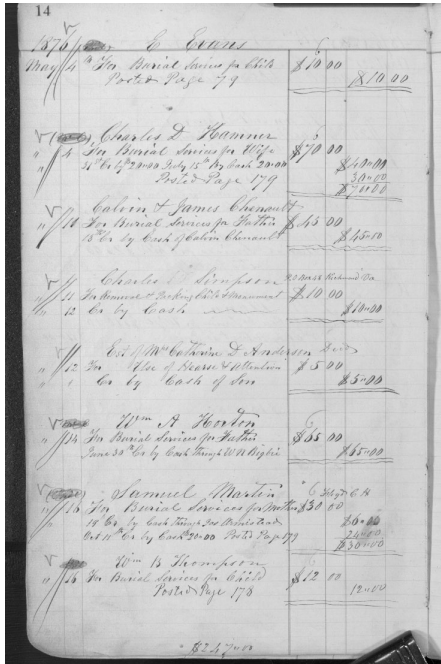 14
1876 E Evans
May 4th For Burial Services for Child $10 00
Posted Page 79 $10 00
Charles D Hamner
" 4 For Burial Services for Wife $70 00
31st Cr by 20=00 July 15th By Cash 20=00 $40=00
Posted Page 179 30=00
$70=00
Calvin & James Chenault
" 10 For Burial Services for Father $45 00
15th Cr by Cash of Calvin Chenault $45=00
Charles Simpson Richmond Va
" 11 For Removal & Packing Child & Monument $10 00
" 12 Cr by Cash $10=00
Est of Mrs Catherine D Anderson Decd
" 12 For Use of Hearse & Attention $5 00
" " Cr by Cash of Son $5=00
Wm A Horton
" 14 For Burial Services for Father $65 00
June 30th Cr by Cash through W R $65=00
Samuel Martin C H
" 16 For Burial Services for Mother $30 00
19th Cr by Cash through Armistead $6=00
Oct 11th Cr by Cash 20=00 Posted Page 179 24=00
$30=00
Wm B Thompson
" 16 For Burial Services for Child $12 00
Posted Page 178 12=00
$247=00